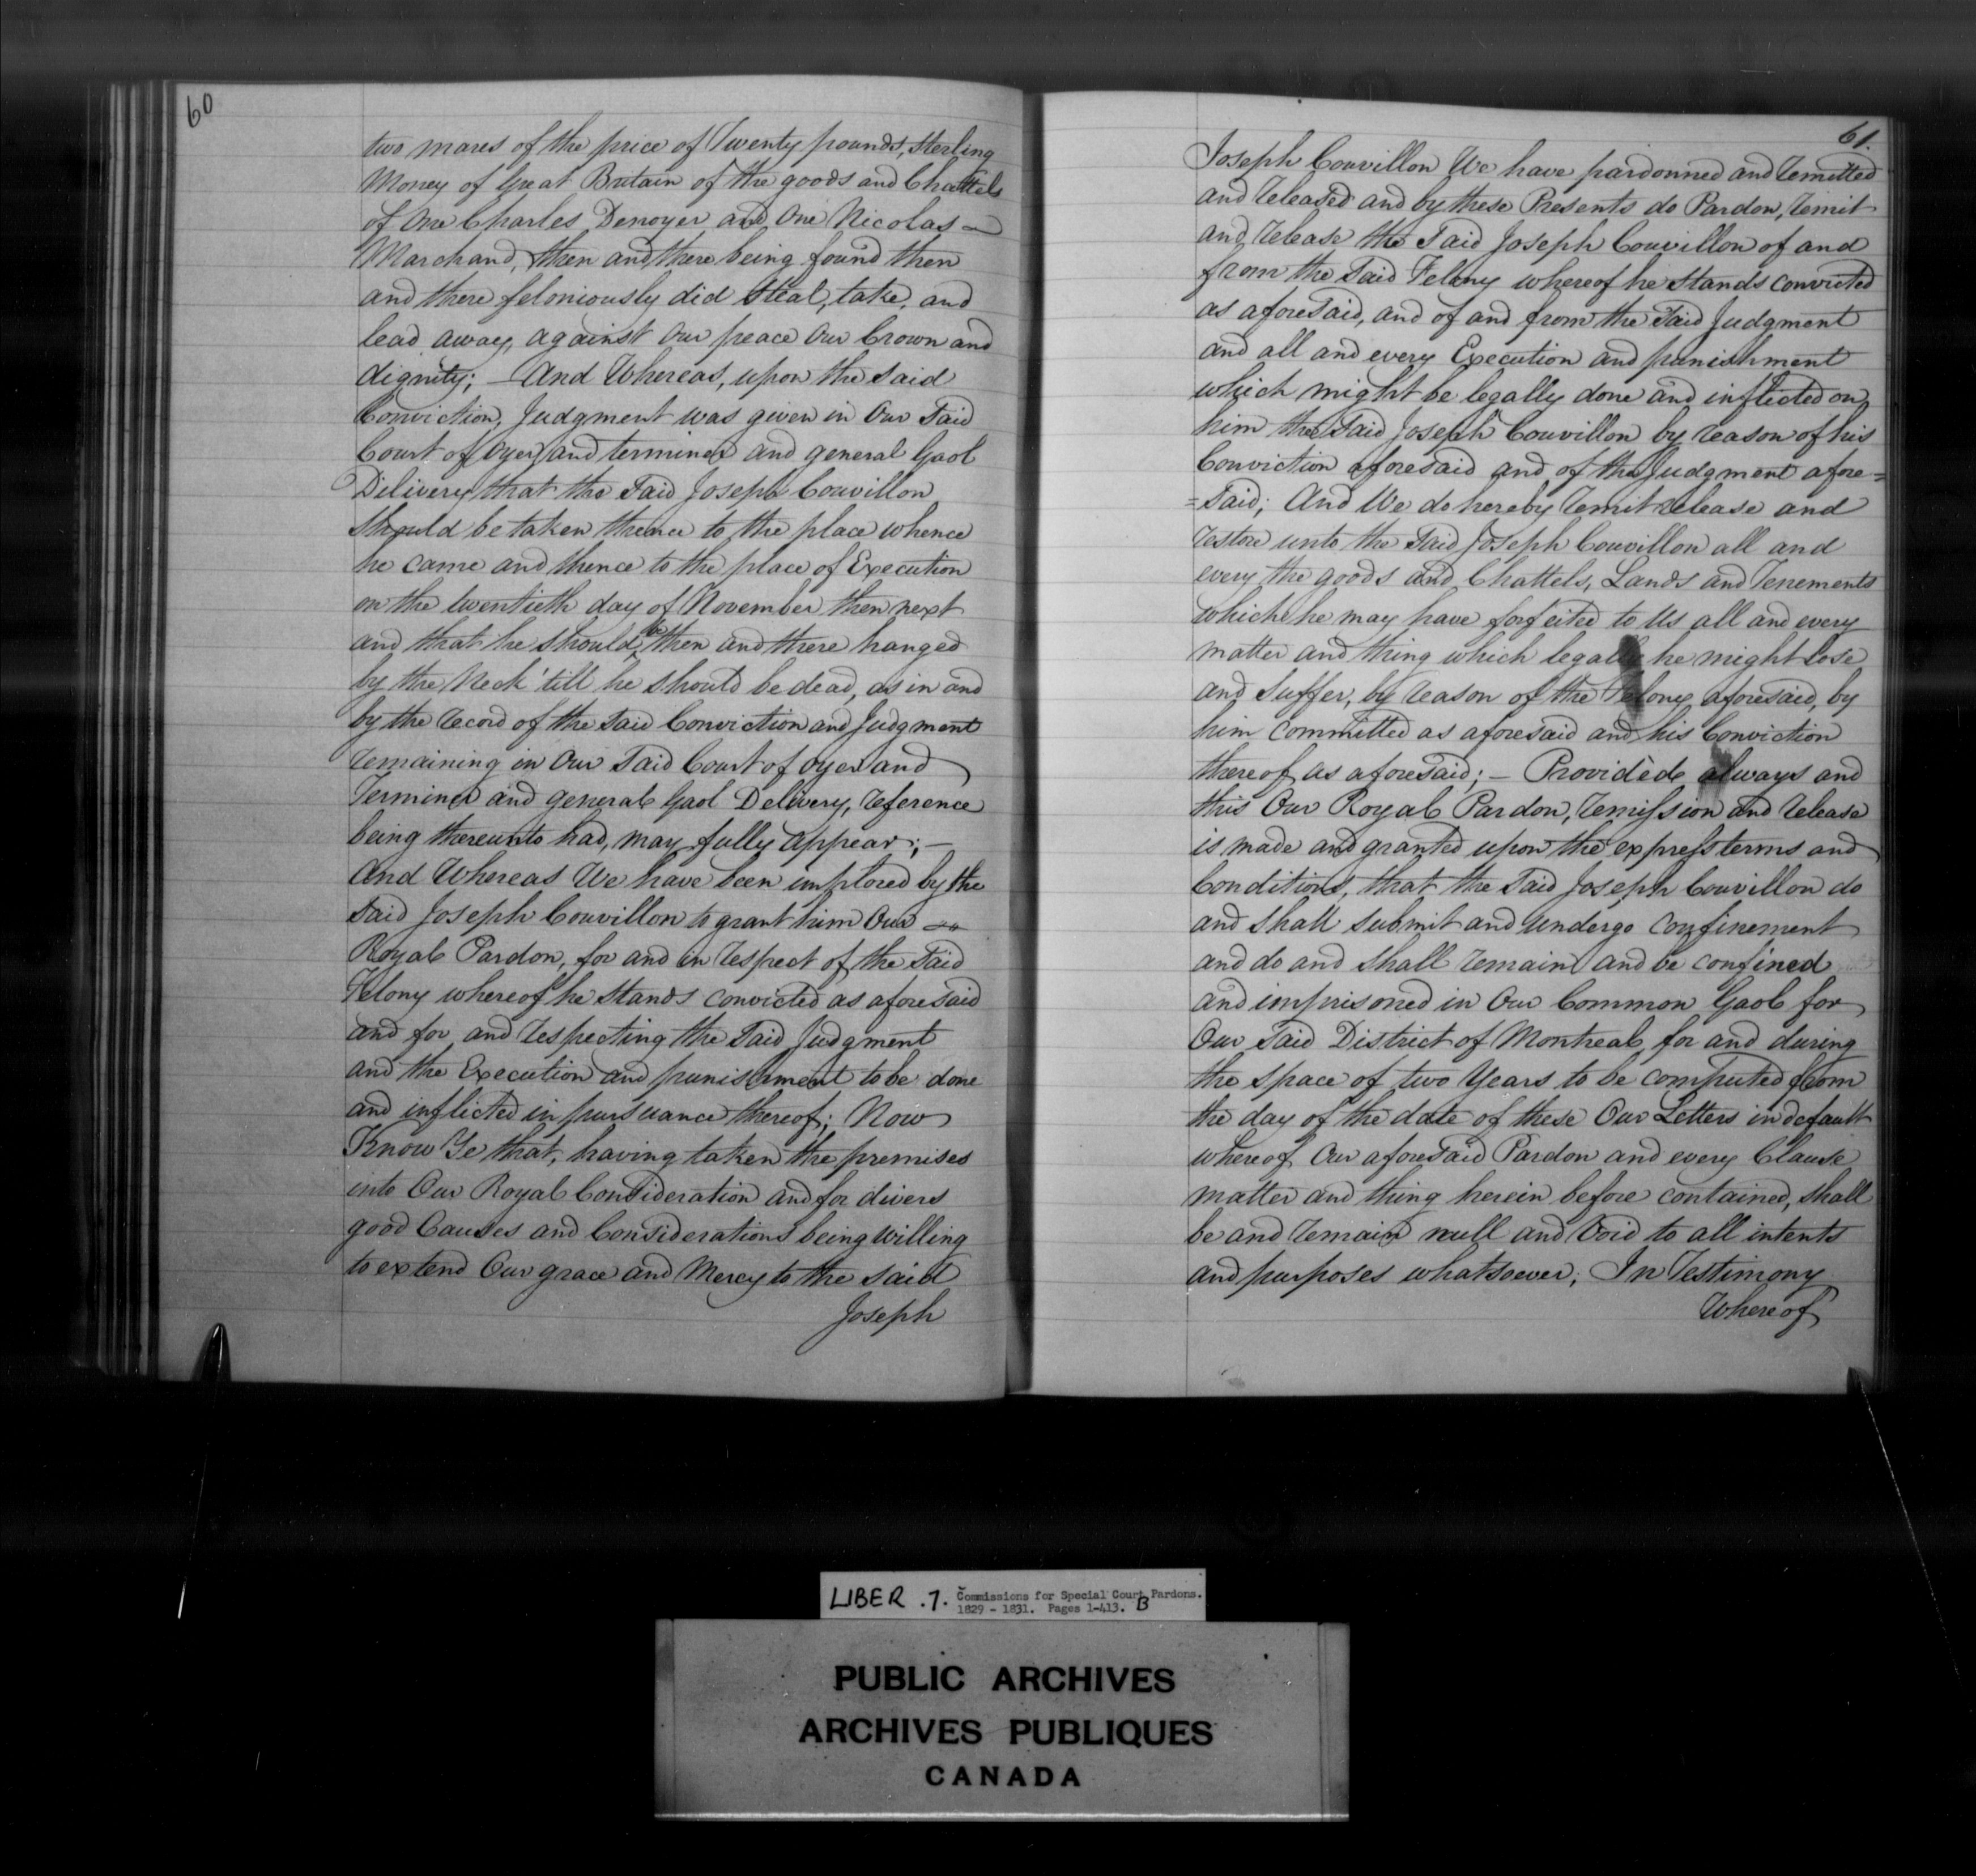 60
two mares of the price of Twenty pounds, Sterling
Money of Great Britain of the goods and Chattels
of One Charles Denoyer and One Nicolas
Marchand, then and there being found then
and there feloniously did Steal, take, and
lead away, against Our peace Our Crown and
dignity; — And Whereas, upon the said
Conviction, Judgment was given in Our Said
Court of Oyer and terminer and general Gaol
Delivery, that the Said Joseph Couvillon
Should be taken thence to the place whence
he came and thence to the place of Execution
on the twentieth day of November then next
and that he should be then and there hanged
by the Neck 'till he should be dead, as in and
by the record of the said Conviction and Judgment
remaining in Our Said Court of Oyer and
Terminer and general Gaol Delivery, reference
being thereunto had, may fully appear; —
And Whereas We have been implored by the
said Joseph Couvillon to grant him Our
Royal Pardon, for and in respect of the Said
Felony whereof he stands convicted as aforesaid
and for and respecting the Said Judgment
and the Execution and punishment to be done
and inflicted in pursuance thereof; Now
Know Ye that, having taken the premises
into Our Royal Consideration and for divers
good Causes and Considerations being willing
to extend Our grace and Mercy to the said
Joseph
61.
Joseph Couvillon We have pardonned and remitted
and released and by these Presents do Pardon, remit
and release the Said Joseph Couvillon of and
from the Said Felony whereof he stands convicted
as aforesaid, and of and from the Said Judgment
and all and every Execution and punishment
which might be legally done and inflicted on
him the Said Joseph Couvillon by reason of his
Conviction aforesaid and of the Judgment afore=
=said; And We do hereby remit release and
restore unto the Said Joseph Couvillon all and
every the goods and Chattels, Lands and Tenements
which he may have forfeited to Us all and every
matter and thing which legally he might lose
and suffer, by reason of the Felony aforesaid, by
him committed as aforesaid and his Conviction
thereof as aforesaid; — Provided always and
this Our Royal Pardon, remission and release
is made and granted upon the express terms and
Conditions, that the Said Joseph Couvillon do
and shall submit and undergo confinement
and do and shall remain and be confined
and imprisoned in Our Common Gaol for
Our Said District of Montreal, for and during
the space of two Years to be computed from
the day of the date of these Our Letters in default
whereof Our aforesaid Pardon and every Clause
matter and thing herein before contained, shall
be and remain null and Void to all intents
and purposes whatsoever; In Testimony
Whereof
LIBER .7. Commissions for Special Court Pardons.
1829 - 1831. Pages 1-413. B
PUBLIC ARCHIVES
ARCHIVES PUBLIQUES
CANADA